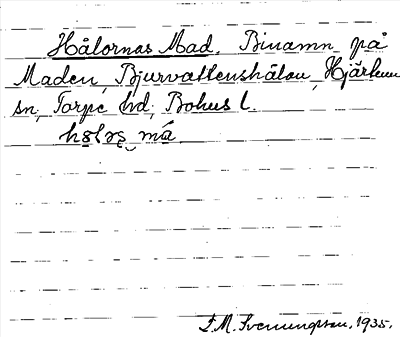 Hålornas Mad. Binamn på
Maden, Bjurvattenshålan, Hjärtum
sn, Torpe hd, Bohus l.
hɵlǝs må
F.M. Svenungsson, 1935.